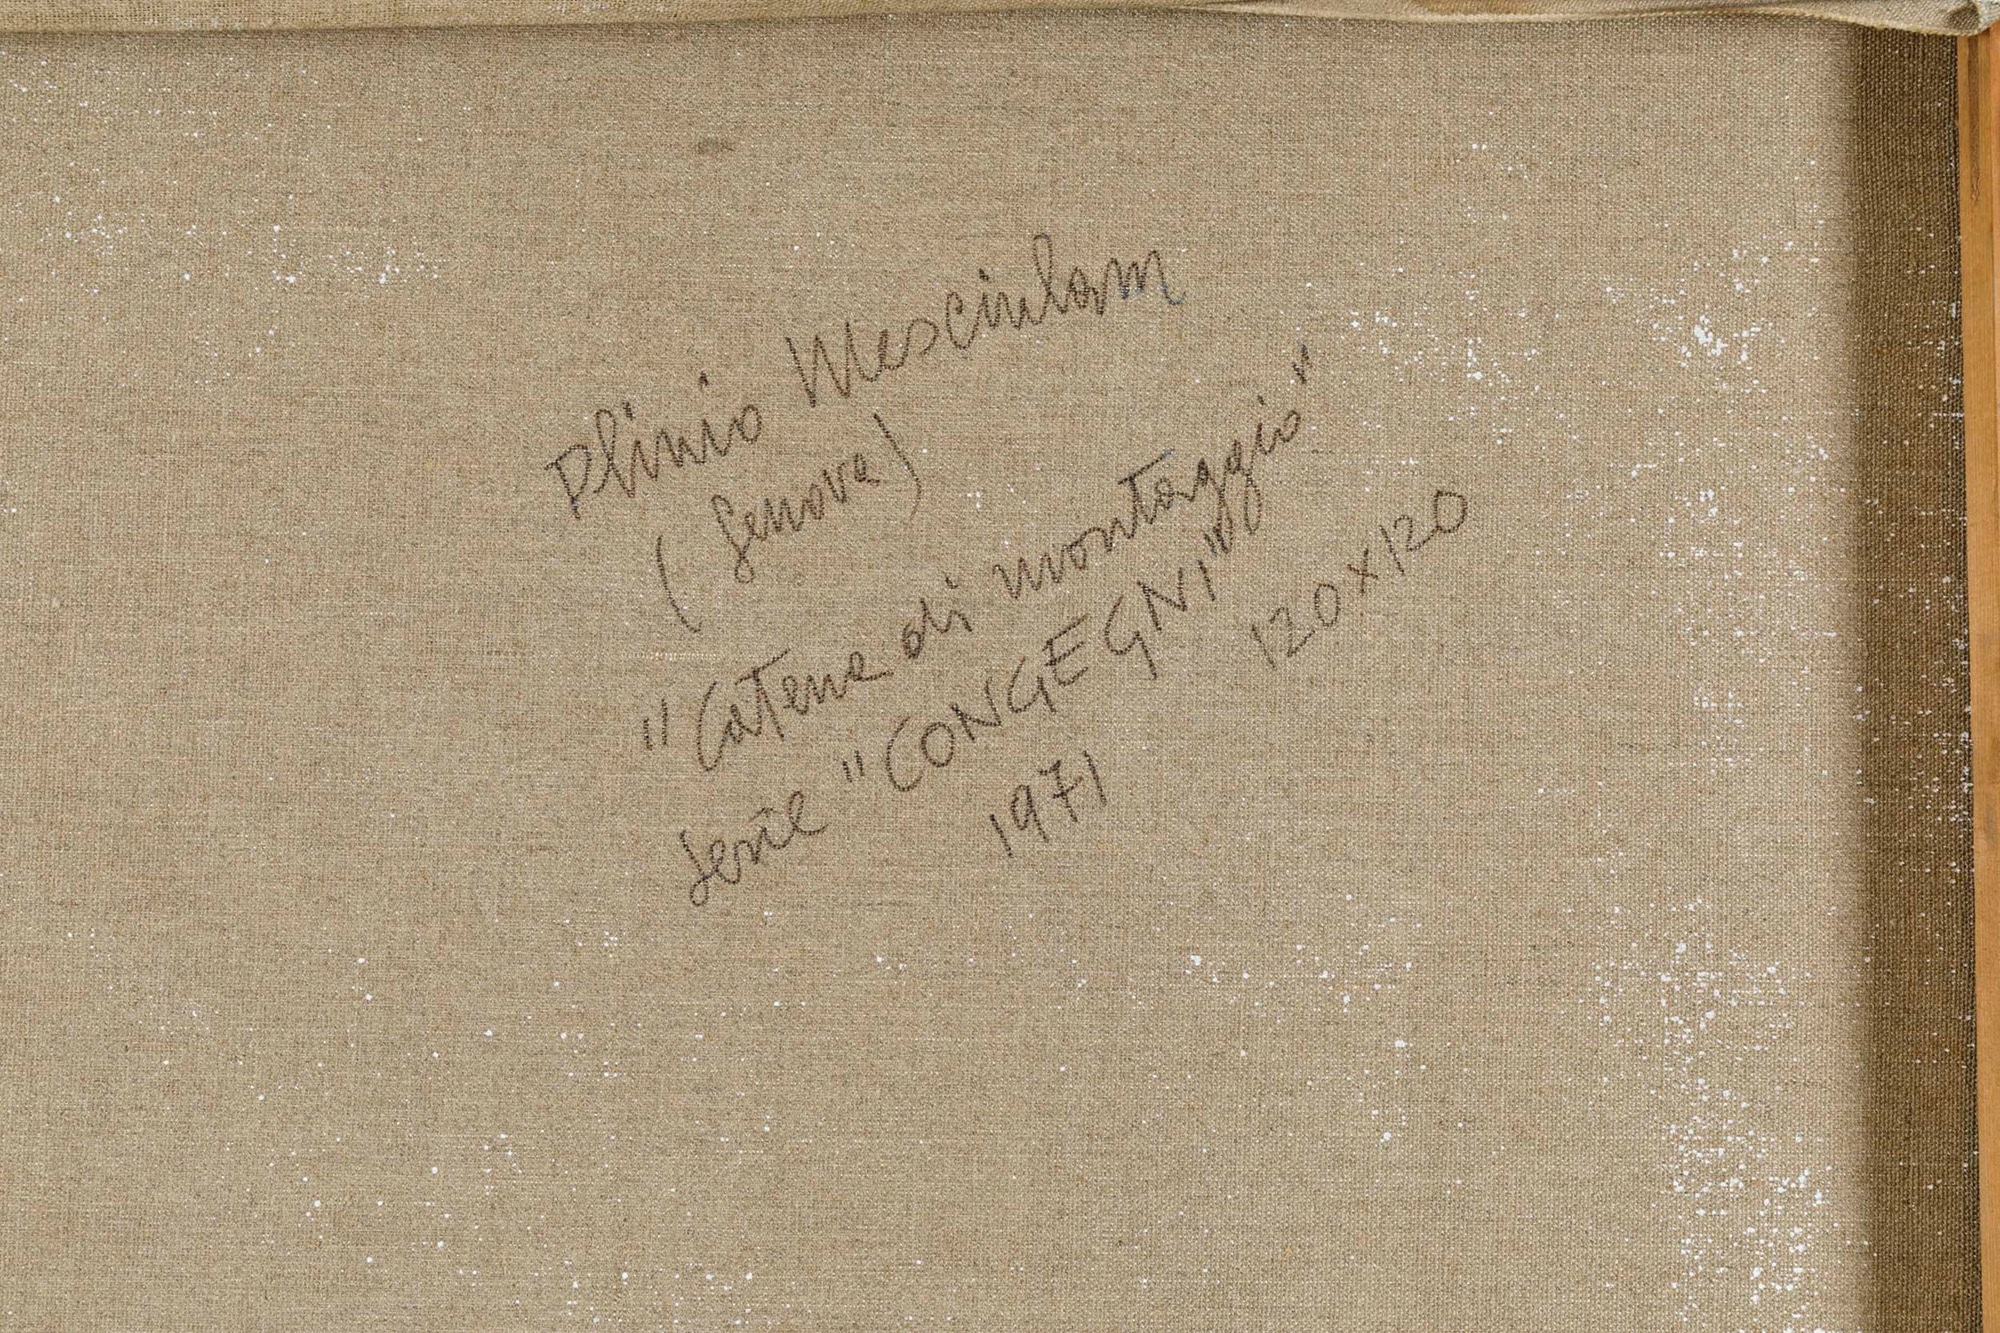 Plinio Mesciulam
(Genova)
"Catena di montaggio"
serie "CONGEGNI" 120x120
1971